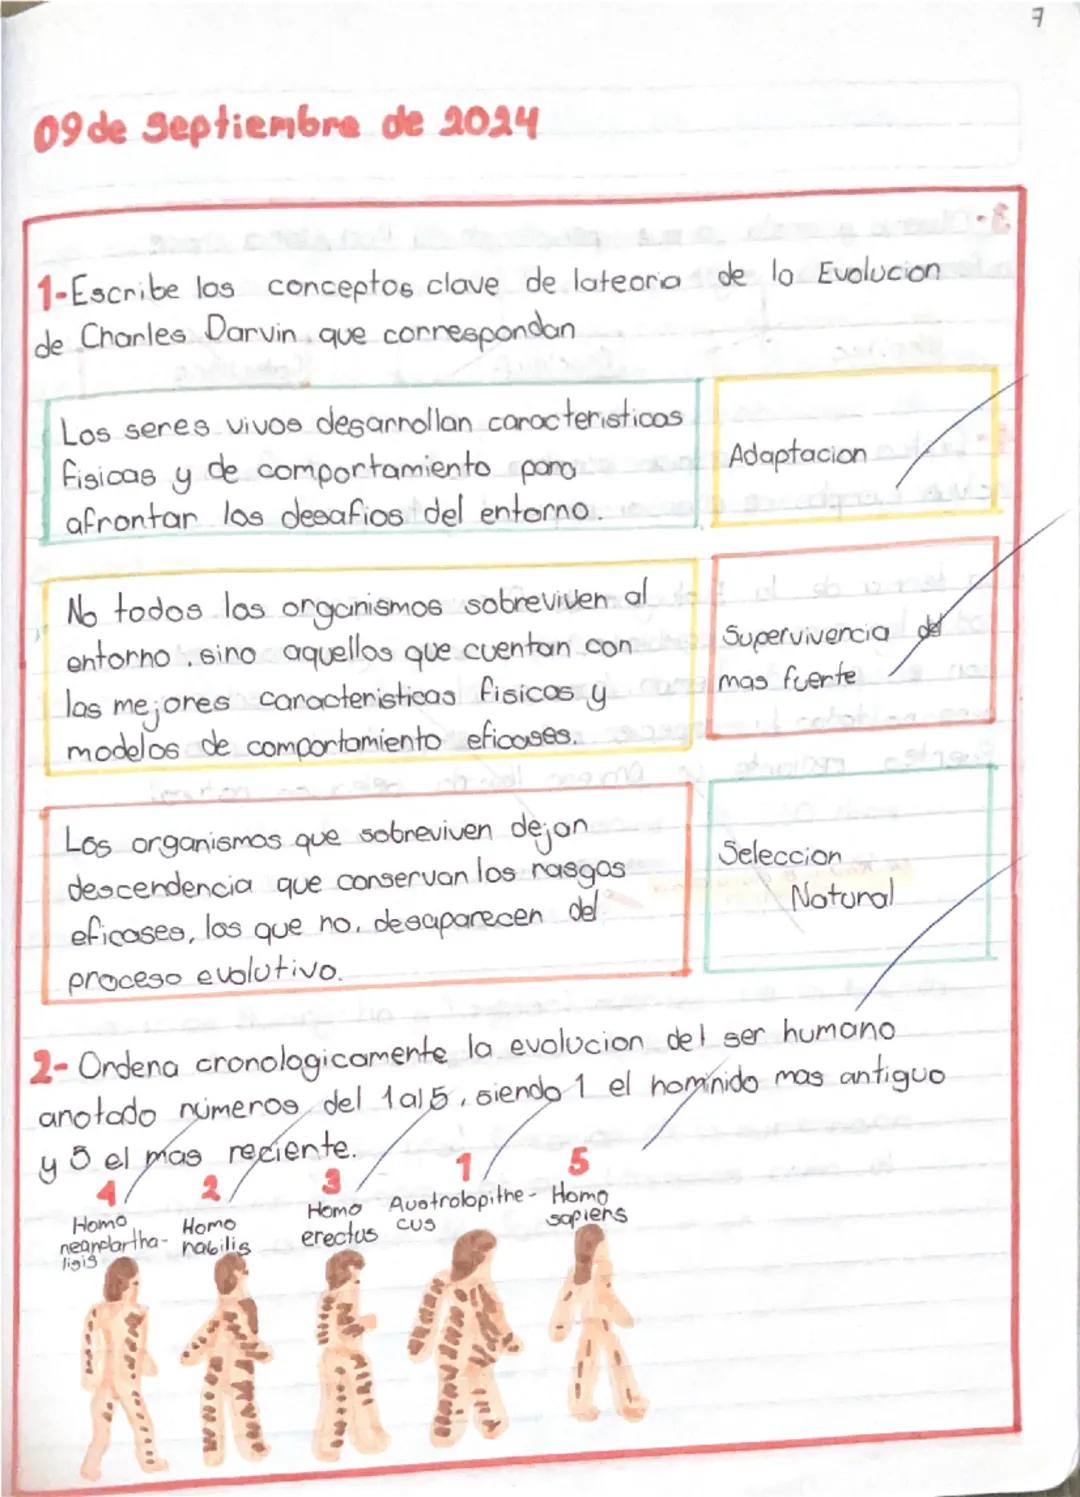 7
09 de Septiembre de 2024
1-Escribe los conceptos clave de lateoria de la Evolucion
de Charles Darvin que correspondan
Los seres vivos desarrollan caracteristicas
fisicas y de comportamiento para
afrontar los desafios del entorno.
Adaptacion
No todos los organismos sobreviven al
entorno, sino aquellos que cuentan con
las mejores caracteristicas fisicas y
modelos de comportamiento eficases.
Supervivencia del
mas fuerte
Los organismos que sobreviven dejan
descendencia que conservan los rasgos
eficases, los que no, desaparecen del
proceso evolutivo.
Seleccion
Natural
2- Ordena cronologicamente la evolucion del ser humano
anotado números del 1 al 5, siendo 1 el homínido mas antiguo
y 5 el mas reciente.
4 2 3 1 5
Homo
neandartha-
ligis
Homo
habilis
Homo
erectus
Australopithe-
cus
Homo
sapiens